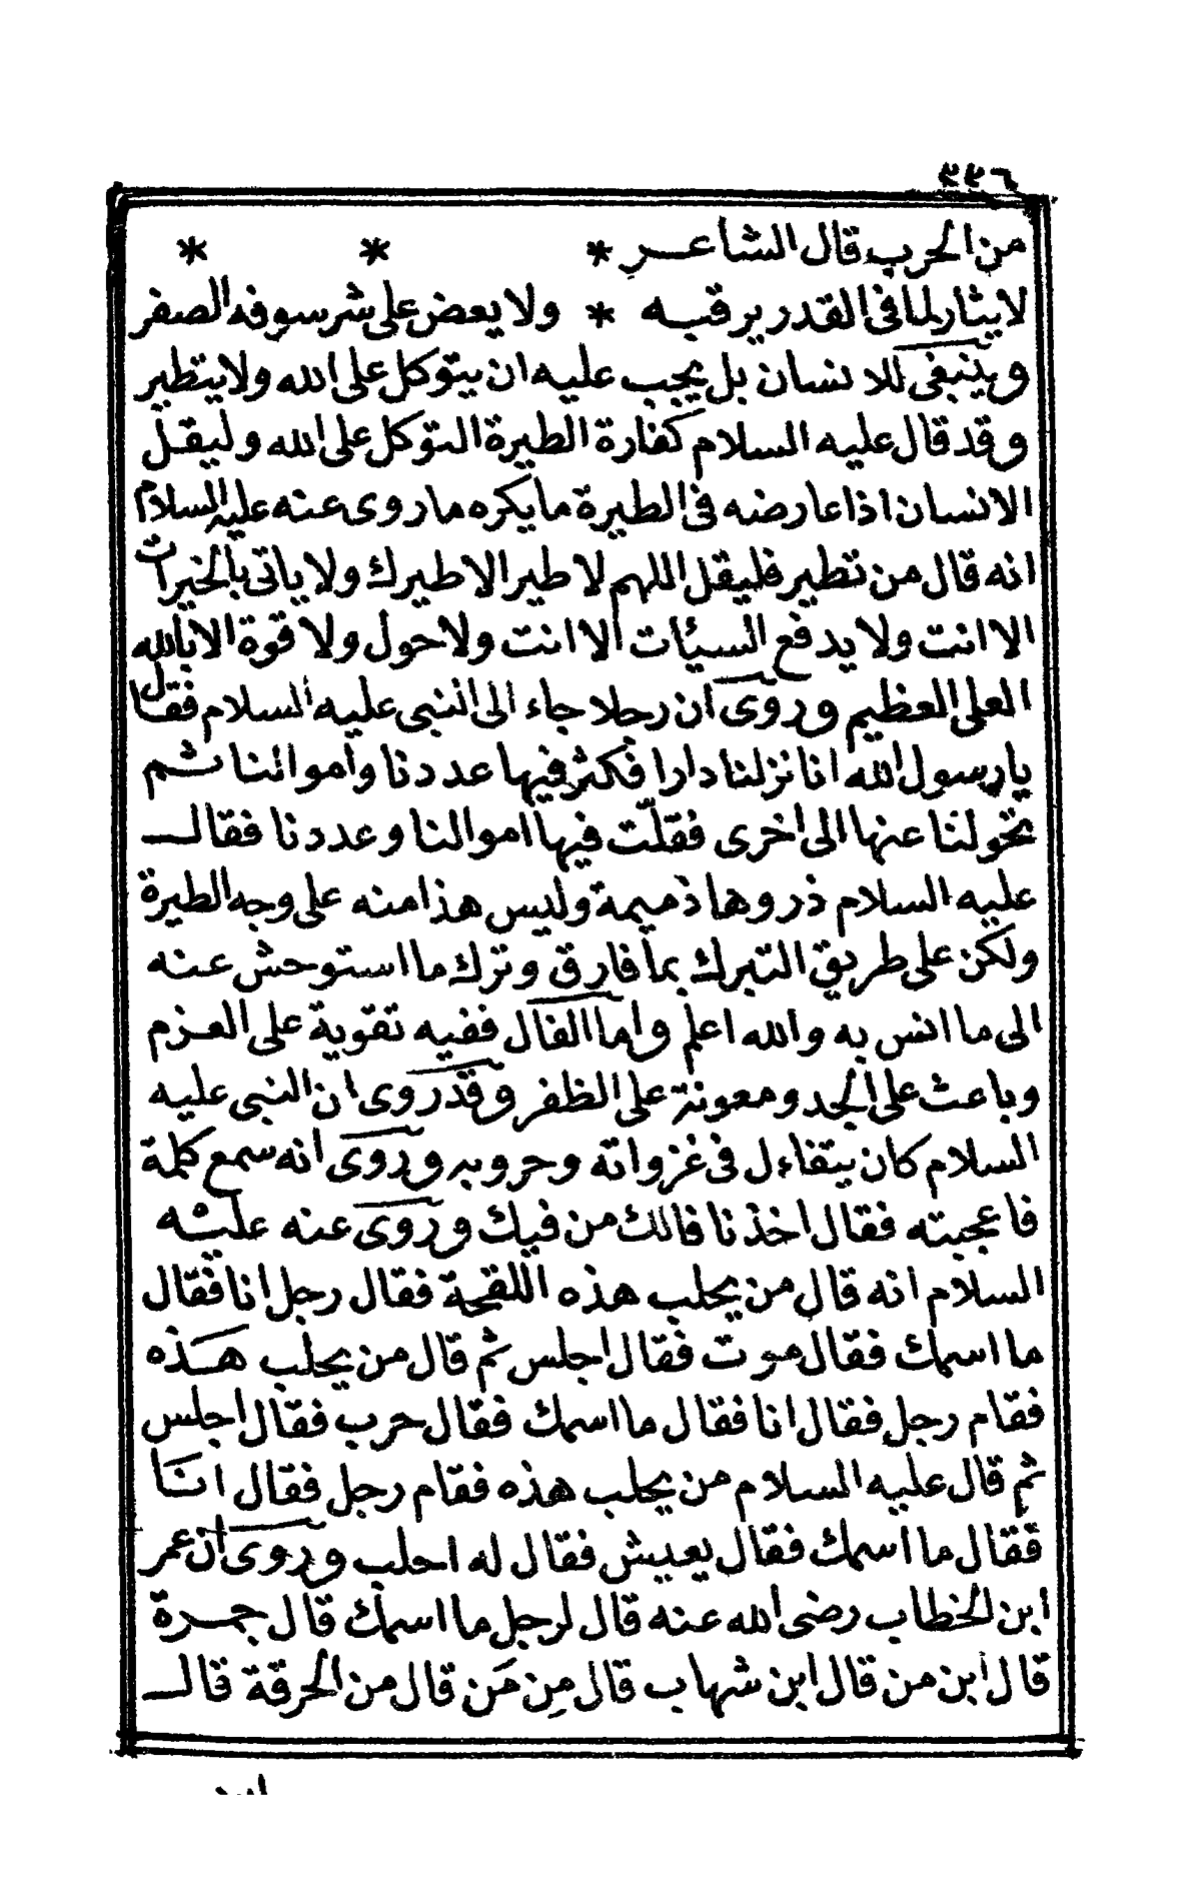 ٣٣٦
من الحرب قال الشاعر * * *
لا يثار لما فى القدر يرقبه * ولا يعض على شر سوفه الصفر
وينبغى للانسان بل يجب عليه ان يتوكل على الله ولا يتطير
وقد قال عليه السلام كفارة الطيرة التوكل على الله وليقل
الانسان اذا عارضه فى الطيرة ما يكره ما روى عنه عليه السلام
انه قال من تطير فليقل اللهم لا طير الا طيرك ولا ياتى بالخيرات
الا انت ولا يدفع السيئات الا انت ولا حول ولا قوة الا بالله
العلى العظيم وروى ان رجلا جاء الى النبى عليه السلام فقال
يا رسول الله انا نزلنا دارا فكثر فيها عددنا واموالنا ثم
تحولنا عنها الى اخرى فقلّت فيها اموالنا وعددنا فقال
عليه السلام ذروها ذميمة وليس هذا منه على وجه الطيرة
ولكن على طريق التبرك بما فارق وترك ما استوحش عنه
الى ما انس به والله اعلم واما الفال ففيه تقوية على العزم
وباعث على الجد ومعونة على الظفر وقد روى ان النبى عليه
السلام كان يتفاءل فى غزواته وحروبه وروى انه سمع كلمة
فاعجبته فقال اخذنا فالك من فيك وروى عنه عليه
السلام انه قال من يحلب هذه اللقحة فقال رجل انا فقال
ما اسمك فقال موت فقال اجلس ثم قال من يحلب هذه
فقام رجل فقال انا فقال ما اسمك فقال حرب فقال اجلس
ثم قال عليه السلام من يحلب هذه فقام رجل فقال انا
فقال ما اسمك فقال يعيش فقال له احلب وروى ان عمر
ابن الخطاب رضى الله عنه قال لرجل ما اسمك قال جمرة
قال ابن من قال ابن شهاب قال مِن مَن قال من الحرقة قال